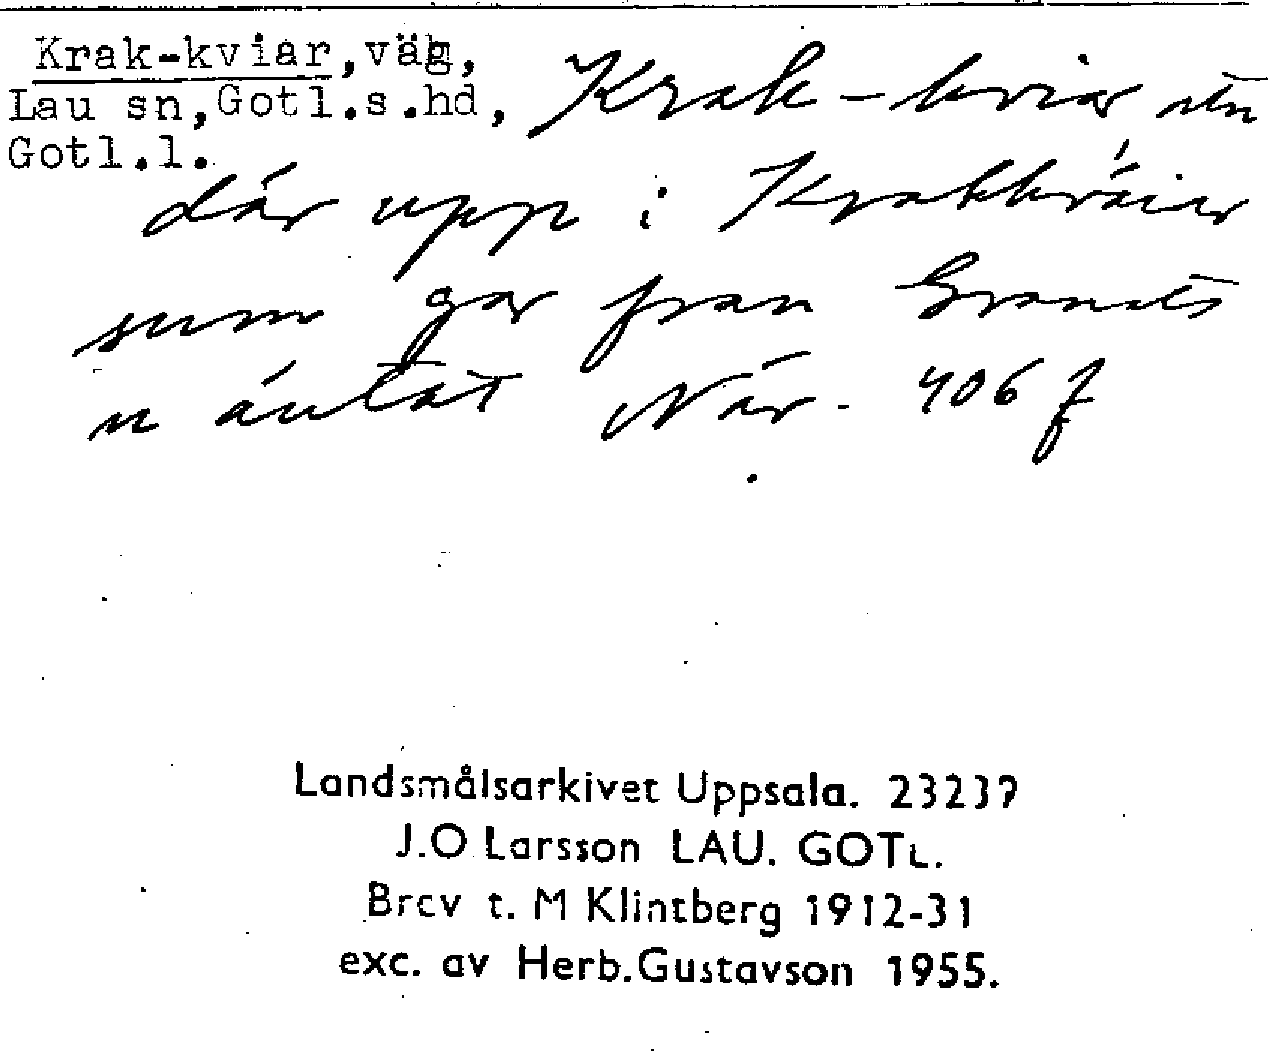 Krak-kviar, väg,
Lau sn, Gotl.s.hd,
Gotl.l.
Krak-kviar
där upp i Krakkväiar
sum gar fran
n äutät När. 406 f
Landsmålsarkivet Uppsala. 23237
J.O Larsson LAU. GOTL.
Brev t. M Klintberg 1912-31
exc. av Herb.Gustavson 1955.